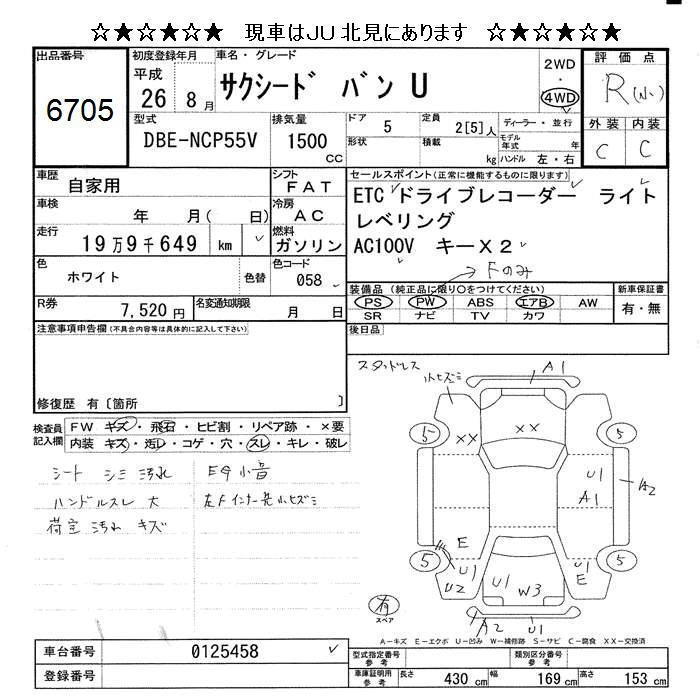 ☆★☆★☆★ 現車はJU北見にあります ☆★☆★☆★
出品番号 初度登録年月 車名・グレード 2WD ・ 4WD 評価点
6705 平成 26 8月 サクシードバン U R(小)
型式 排気量 ドア 定員 ディーラー・並行 外装 内装
DBE-NCP55V 1500 CC 5 2[5]人 モデル年式 年 C C
形状 積載 kg ハンドル 左・右
車歴 自家用 シフト FAT セールスポイント(正常に機能するものに限ります)
車検 年 月( 日) 冷房 AC ETC ドライブレコーダー ライト
レベリング
走行 19万9千649 km 燃料 ガソリン AC100V キーX2
Fのみ
色 ホワイト 色替 色コード 058
装備品(純正品に限り○をつけてください) 新車保証書
PS PW ABS エアB AW 有・無
SR ナビ TV カワ
R券 7,520円 名変通知期限 月 日
注意事項申告欄(不具合内容等は具体的に記入して下さい) 後日品
修復歴 有〔箇所 〕
スタッドレス 小ヒズミ A1
検査員記入欄 FW キズ・飛石・ヒビ割・リペア跡・×要
内装 キズ・汚レ・コゲ・穴・スレ・キレ・破レ
5 XX XX 5
シート シミ 汚れ EG小音
U1 A1 A2
ハンドルスレ 大 左Fインナー先小ヒズミ
荷室 汚れ キズ
E U1 U2 5 5 U1 E
U1 W3
有 スペア A2 U1
A-キズ E-エクボ U-凹み W-補修跡 S-サビ C-腐食 XX-交換済
車台番号 0125458 型式指定番号 参考 類別区分番号 参考
登録番号 車庫証明用 参考 長さ 430 cm 幅 169 cm 高さ 153 cm